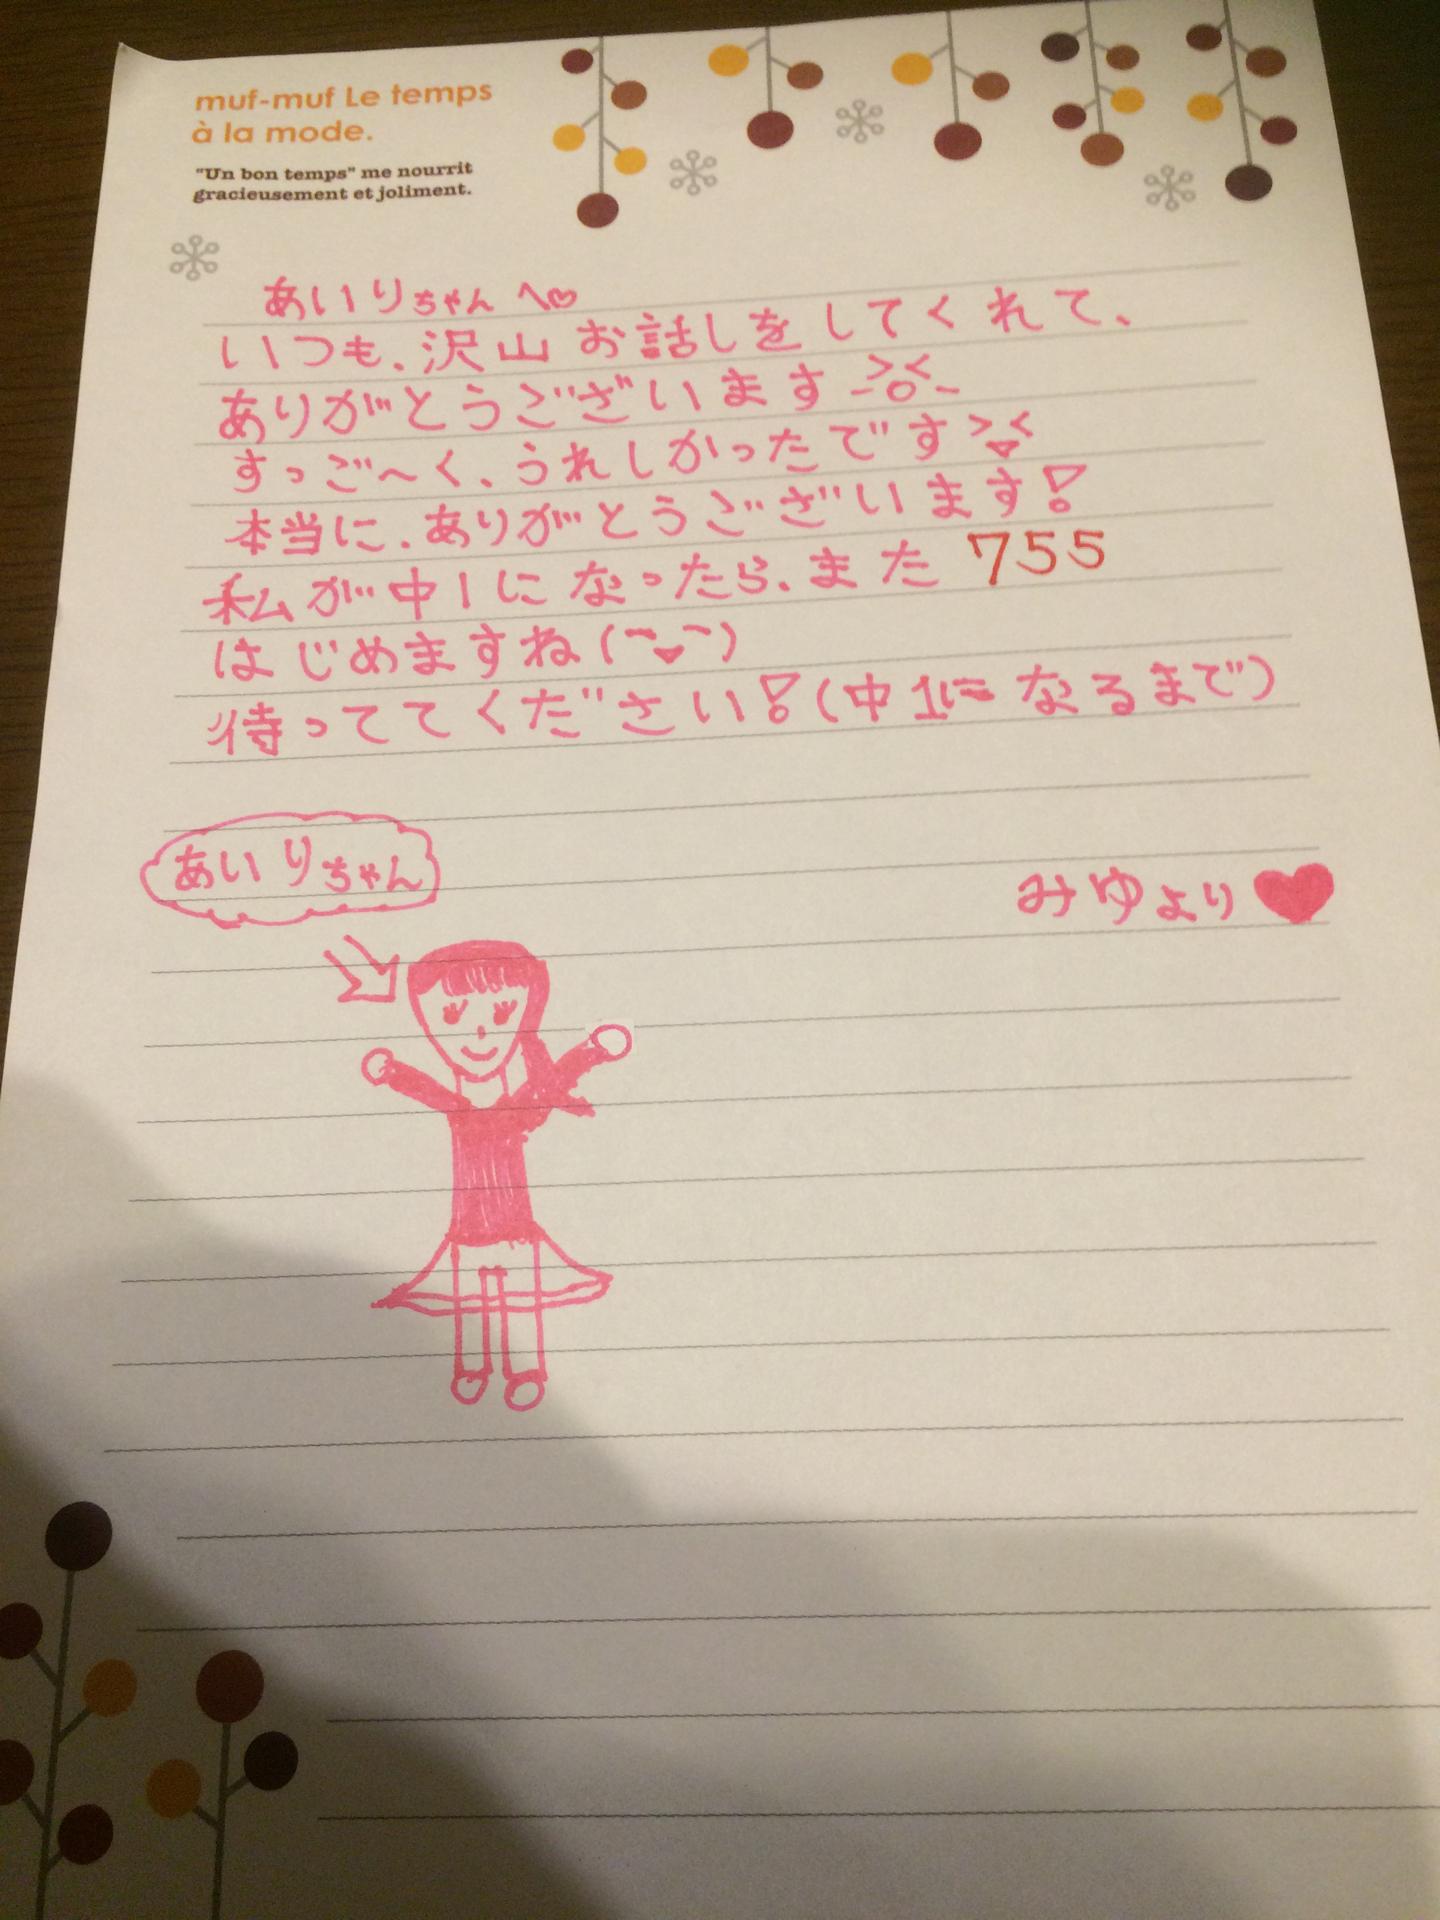 muf-muf Le temps
à la mode.
"Un bon temps" me nourrit
gracieusement et joliment.
あいりちゃんへ♡
いつも、沢山お話しをしてくれて、
ありがとうございます->o<-
すっご〜く、うれしかったです
本当に、ありがとうございます!
私が中1になったら、また755
はじめますね(ー◡ー)
待っててください!(中1になるまで)
あいりちゃん
みゆより♥